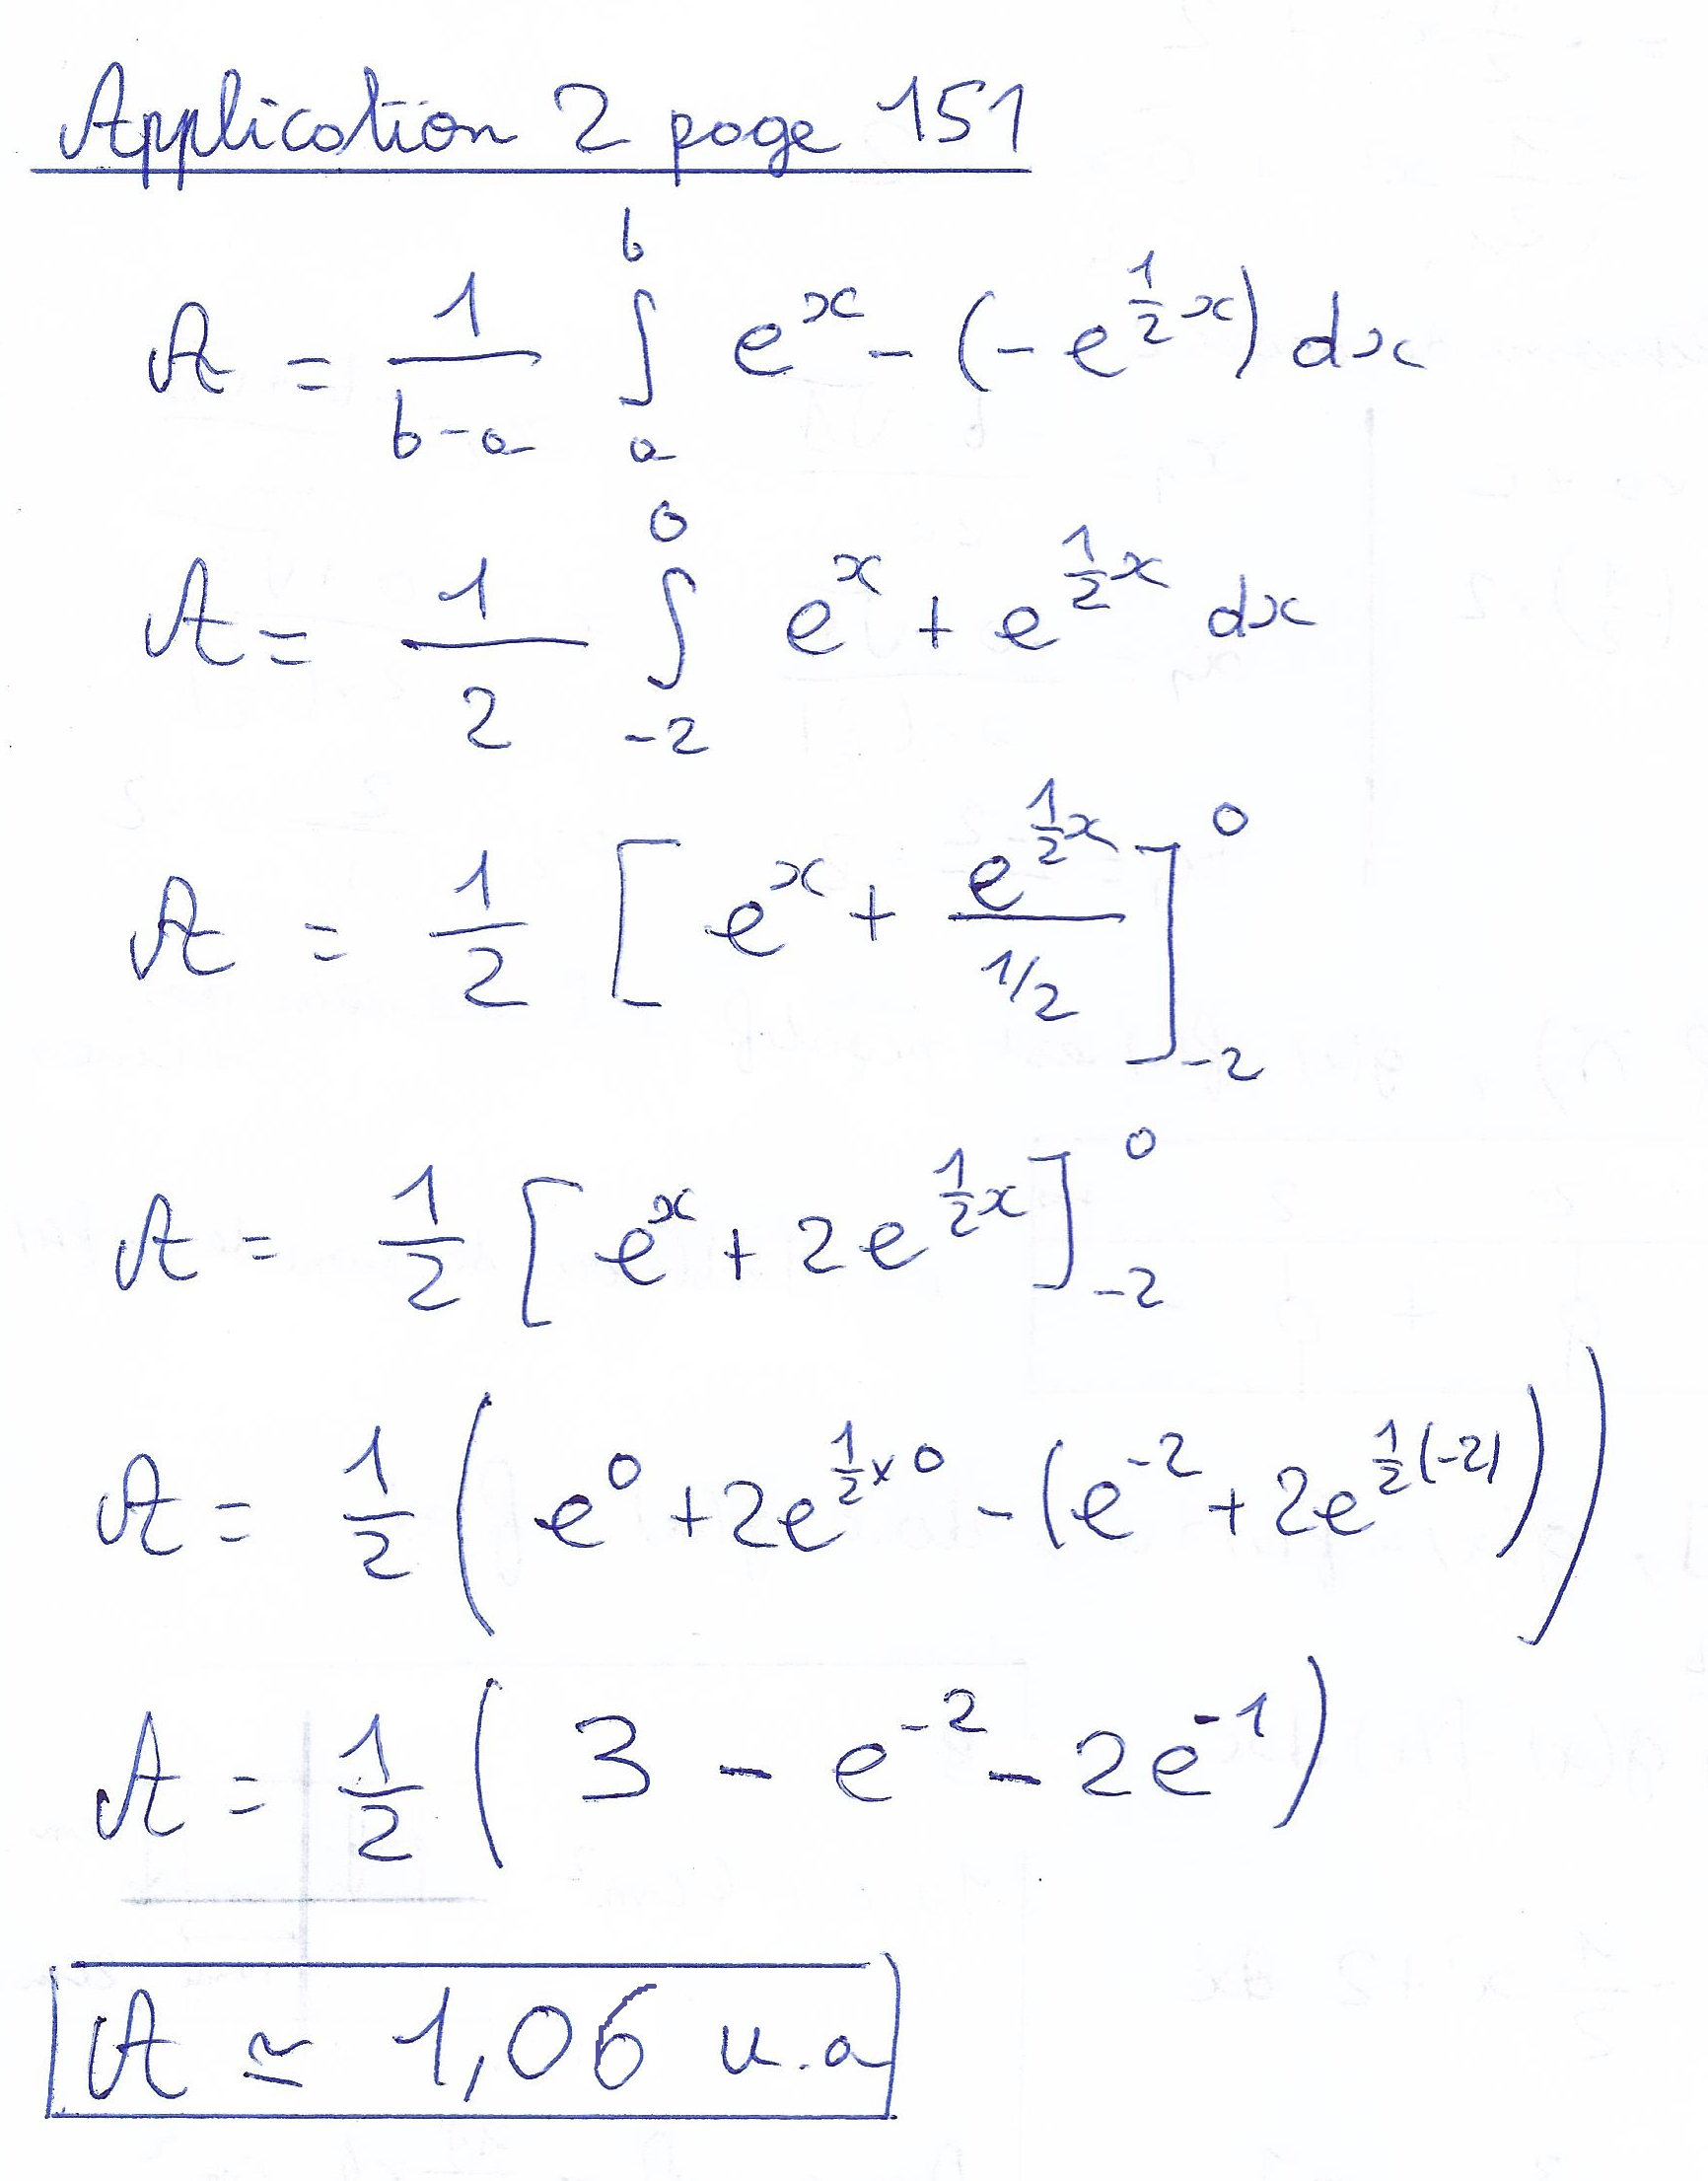 Application 2 page 151
A = 1/(b-a) ∫_a^b e^x - (-e^(1/2 x)) dx
A = 1/2 ∫_-2^0 e^x + e^(1/2 x) dx
A = 1/2 [e^x + e^(1/2 x)/(1/2)]_-2^0
A = 1/2 [e^x + 2e^(1/2 x)]_-2^0
A = 1/2 (e^0 + 2e^(1/2 × 0) - (e^-2 + 2e^(1/2 (-2))))
A = 1/2 (3 - e^-2 - 2e^-1)
A ≃ 1,06 u.a